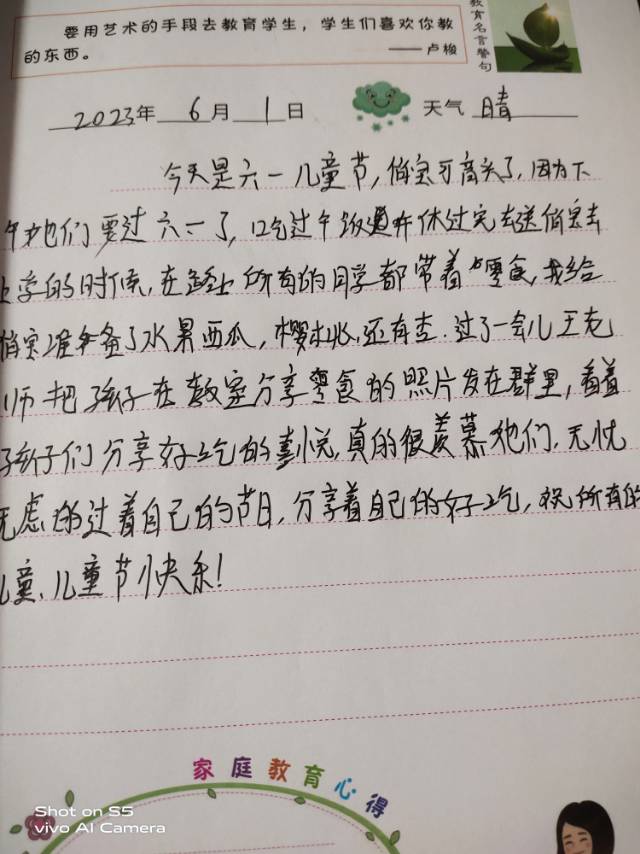 要用艺术的手段去教育学生，学生们喜欢你教
的东西。
——卢梭
教育名言警句
2023年 6月 1日 天气 晴
今天是六一儿童节，俏宝可高兴了，因为下
午她们要过六一了，吃过午饭 休过完去送俏宝去
上学的时候，在路上所有的同学都带着零食，我给
俏宝准备了水果西瓜，樱桃，还有杏．过了一会儿王老
师把孩子在教室分享零食的照片发在群里，看着
孩子们分享好吃的喜悦，真的很羡慕他们，无忧
无虑的过着自己的节日，分享着自己的好吃，祝所有的
儿童、儿童节快乐！
家庭教育心得
Shot on S5
vivo AI Camera